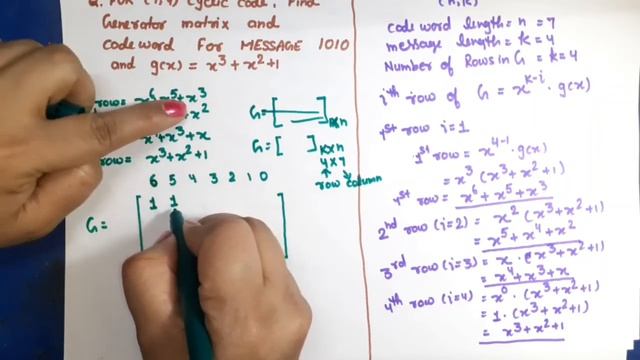 Q. FOR (7,4) cyclic code, Find
Generator matrix and
codeword FOR MESSAGE 1010
and g(x) = x³+x²+1
row= x⁶+x⁵+x³
+x²
x⁴+x³+x
row= x³+x²+1
6 5 4 3 2 1 0
G = [ 1 1
G=[ ]k×n
G=[ ]k×n
4×7
row column
(n,k)
code word length=n=7
message length=k=4
Number of Rows in G = k=4
ith row of G = x^(k-i) . g(x)
1st row i=1
1st row = x^(4-1) . g(x)
= x³ (x³+x²+1)
1st row = x⁶+x⁵+x³
2nd row (i=2) = x² (x³+x²+1)
= x⁵+x⁴+x²
3rd row (i=3) = x . (x³+x²+1)
= x⁴+x³+x
4th row (i=4) = x⁰ . (x³+x²+1)
= 1 . (x³+x²+1)
= x³+x²+1